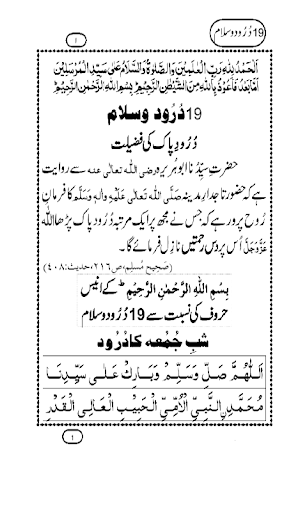 19 دُرُود وسلام
۱
اَلْحَمْدُ لِلّٰهِ رَبِّ الْعٰلَمِيْنَ وَالصَّلٰوةُ وَالسَّلَامُ عَلٰى سَيِّدِ الْمُرْسَلِيْنَ
اَمَّا بَعْدُ فَاَعُوْذُ بِاللّٰهِ مِنَ الشَّيْطٰنِ الرَّجِيْمِ بِسْمِ اللّٰهِ الرَّحْمٰنِ الرَّحِيْمِ
19 دُرُود وسلام
دُرُودِ پاک کی فضیلت
حضرتِ سیِّدُنا ابو ہُریرہ رضی اللہ تعالٰی عنہ سے روایت
ہے کہ حضور تاجدارِ مدینہ صَلَّی اللہ تَعَالٰی عَلَیْہِ وَاٰلِہٖ وَسَلَّم کا فرمانِ
رُوح پرور ہے کہ جس نے مجھ پر ایک مرتبہ دُرُودِ پاک پڑھا اللہ
عَزَّوَجَلَّ اُس پر دس رحمتیں نازِل فرمائے گا۔
(صَحِیح مُسلِم، ص۲۱۶، حدیث:۴۰۸)
بِسْمِ اللّٰهِ الرَّحْمٰنِ الرَّحِيْمِ کے انیس
حروف کی نسبت سے 19 دُرُود وسلام
شبِ جُمعہ کا دُرُود
اَللّٰهُمَّ صَلِّ وَسَلِّمْ وَبَارِكْ عَلٰى سَيِّدِنَا
مُحَمَّدِنِ النَّبِيِّ الْاُمِّيِّ الْحَبِيْبِ الْعَالِي الْقَدْرِ
۱